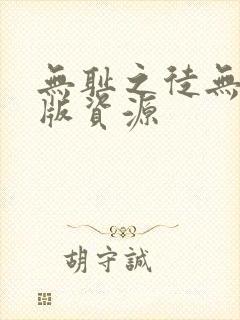 無耻之徒無
版資源
胡守誠